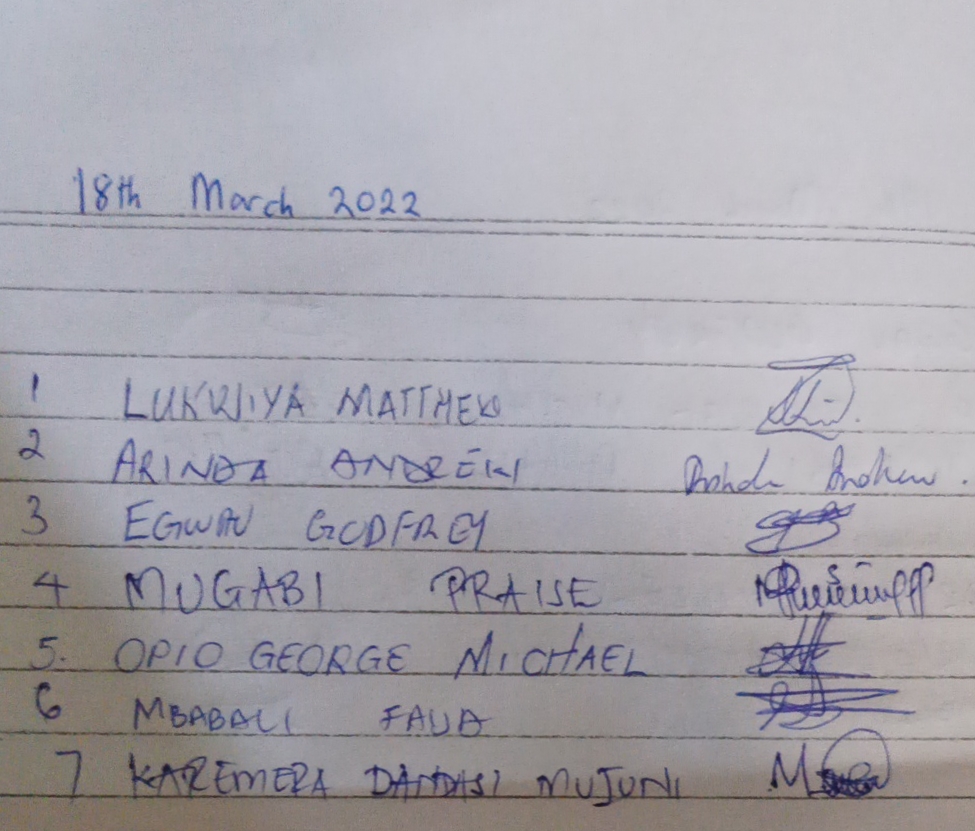 18th March 2022
1 LUKWIYA MATTHEW
2 ARINDA ANDREW
3 EGWAU GODFREY
4 MUGABI PRAISE
5. OPIO GEORGE MICHAEL
6 MBABALI
7 KAREMERA MUJUNI